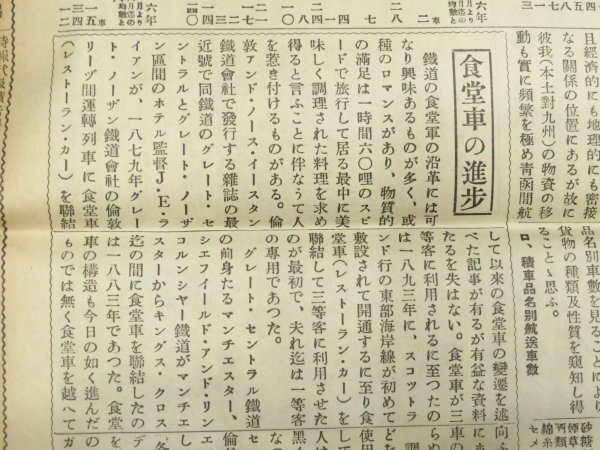 且經濟的にも地理的にも密接
なる關係の位置にあるが故に
彼我(本土對九州)の物資の移
動も實に頻繁を極め青函間航
品名別車數を見ることにより
貨物の種類及性質を窺知し得
ることゝ思ふ。
ロ、積車品名別航送車數
食堂車の進步
鐵道の食堂車の沿革には可
なり興味あるものが多く、或
種のロマンスがあり、物質的
の滿足は一時間六〇哩のスピ
ードで旅行して居る最中に美
味しく調理された料理を求め
得ると言ふことに伴なうて人
を惹き付けるものがある。倫
敦アンド・ノース・イースタン
鐵道會社で發行する雜誌の最
近號で同鐵道のグレート・セ
ントラルとグレート・ノーザ
ン區間のホテル監督J・E・ラ
イアンが、一八七九年グレー
ト・ノーザン鐵道會社の倫敦
リーヅ間運轉列車に食堂車
(レストーラン・カー)を聯結
して以來の食堂車の變遷を述
べた記事が有るが有益な資料
たるを失はない。食堂車が三
等客に利用されるに至つたの
は一八九三年に、スコツトラ
ンド行の東部海岸線が初めて
敷設されて開通するに至り食
堂車(レストーラン・カー)を
聯結して三等客に利用させた
のが最初で、夫れ迄は一等客
の專用であつた。
グレート・セントラル鐵道
の前身たるマンチエスター、
シエフイールド・アンド・リン
コルンシヤー鐵道がマンチエ
スターからキングス・クロス
迄の間に食堂車を聯結したの
は一八八三年であつた。食堂
車の構造も今日の如く進んだ
ものでは無く食堂車を越へて